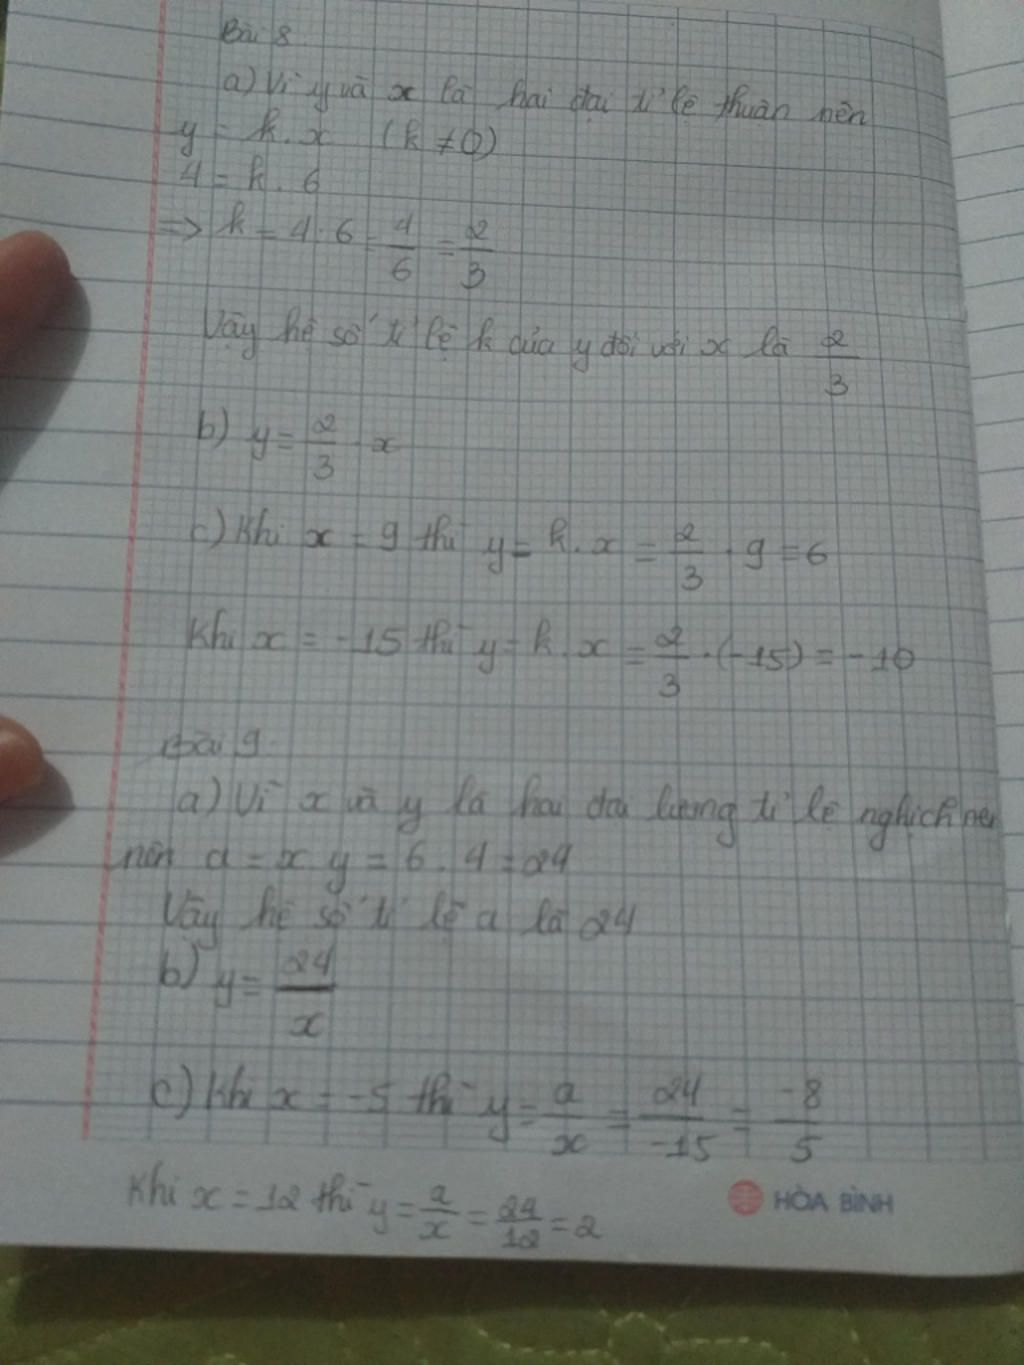 Bài 8
a) Vì y và x là hai đại tỉ lệ thuận nên
y = k.x (k ≠ 0)
4 = k. 6
=> k = 4.6 = 4/6 = 2/3
Vậy hệ số tỉ lệ k của y đối với x là 2/3
b) y = 2/3 . x
c) Khi x = 9 thì y = k. x = 2/3 . 9 = 6
Khi x = -15 thì y = k. x = 2/3 .(-15) = -10
Bài 9
a) Vì x và y là hai đại lượng tỉ lệ nghịch nên
nên a = x.y = 6.4 = 24
Vậy hệ số tỉ lệ a là 24
b) y = 24/x
c) Khi x = -5 thì y = a/x = 24/-15 = -8/5
Khi x = 12 thì y = a/x = 24/12 = 2
HÒA BÌNH